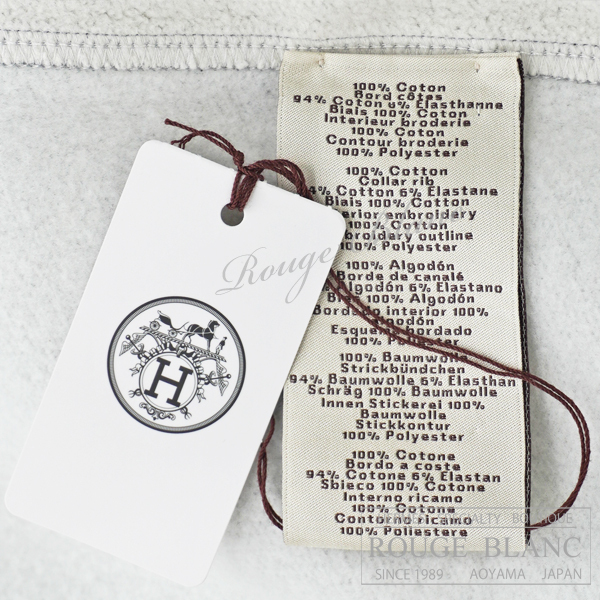 100% Coton
Bord côtes
94% Coton 6% Elasthanne
Biais 100% Coton
Interieur broderie
100% Coton
Contour broderie
100% Polyester
100% Cotton
Collar rib
4% Cotton 6% Elastane
Biais 100% Cotton
erior embroidery
% Cotton
broidery outline
% Polyester
100% Algodón
Borde de canalé
% Algodón 6% Elastano
Bies 100% Algodón
Bordado interior 100%
Algodón
Esquema bordado
100% Poliester
100% Baumwolle
Strickbündchen
94% Baumwolle 6% Elasthan
Schräg 100% Baumwolle
Innen Stickerei 100%
Baumwolle
Stickkontur
100% Polyester
100% Cotone
Bordo a coste
94% Cotone 6% Elastan
Sbieco 100% Cotone
Interno ricamo
100% Cotone
Contorno ricamo
100% Poliestere
H
Rouge
HERMES SPECIALTY BOUTIQUE
ROUGE BLANC
SINCE 1989 AOYAMA JAPAN